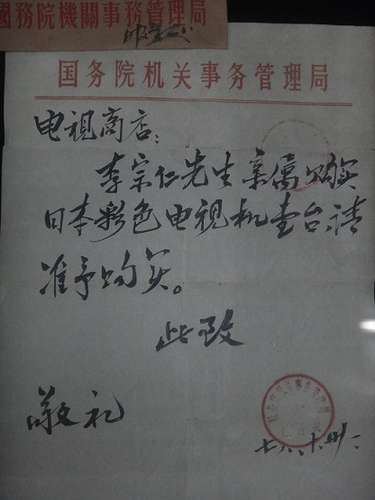 國務院機關事務管理局
国务院机关事务管理局
电视商店：
李宗仁先生亲属购买
日本彩色电视机壹台请
准予购买。
此致
敬礼